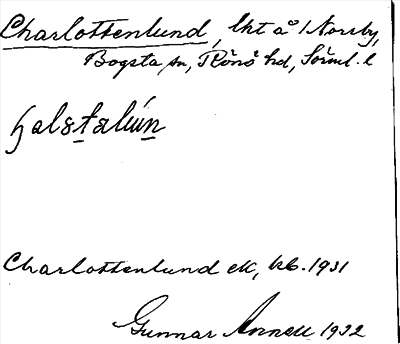 Charlottenlund, lht å 1 Norrby,
Bogsta sn, Rönö hd, Sörml. l
Charlottenlund ek, kb. 1931
Gunnar Annell 1932